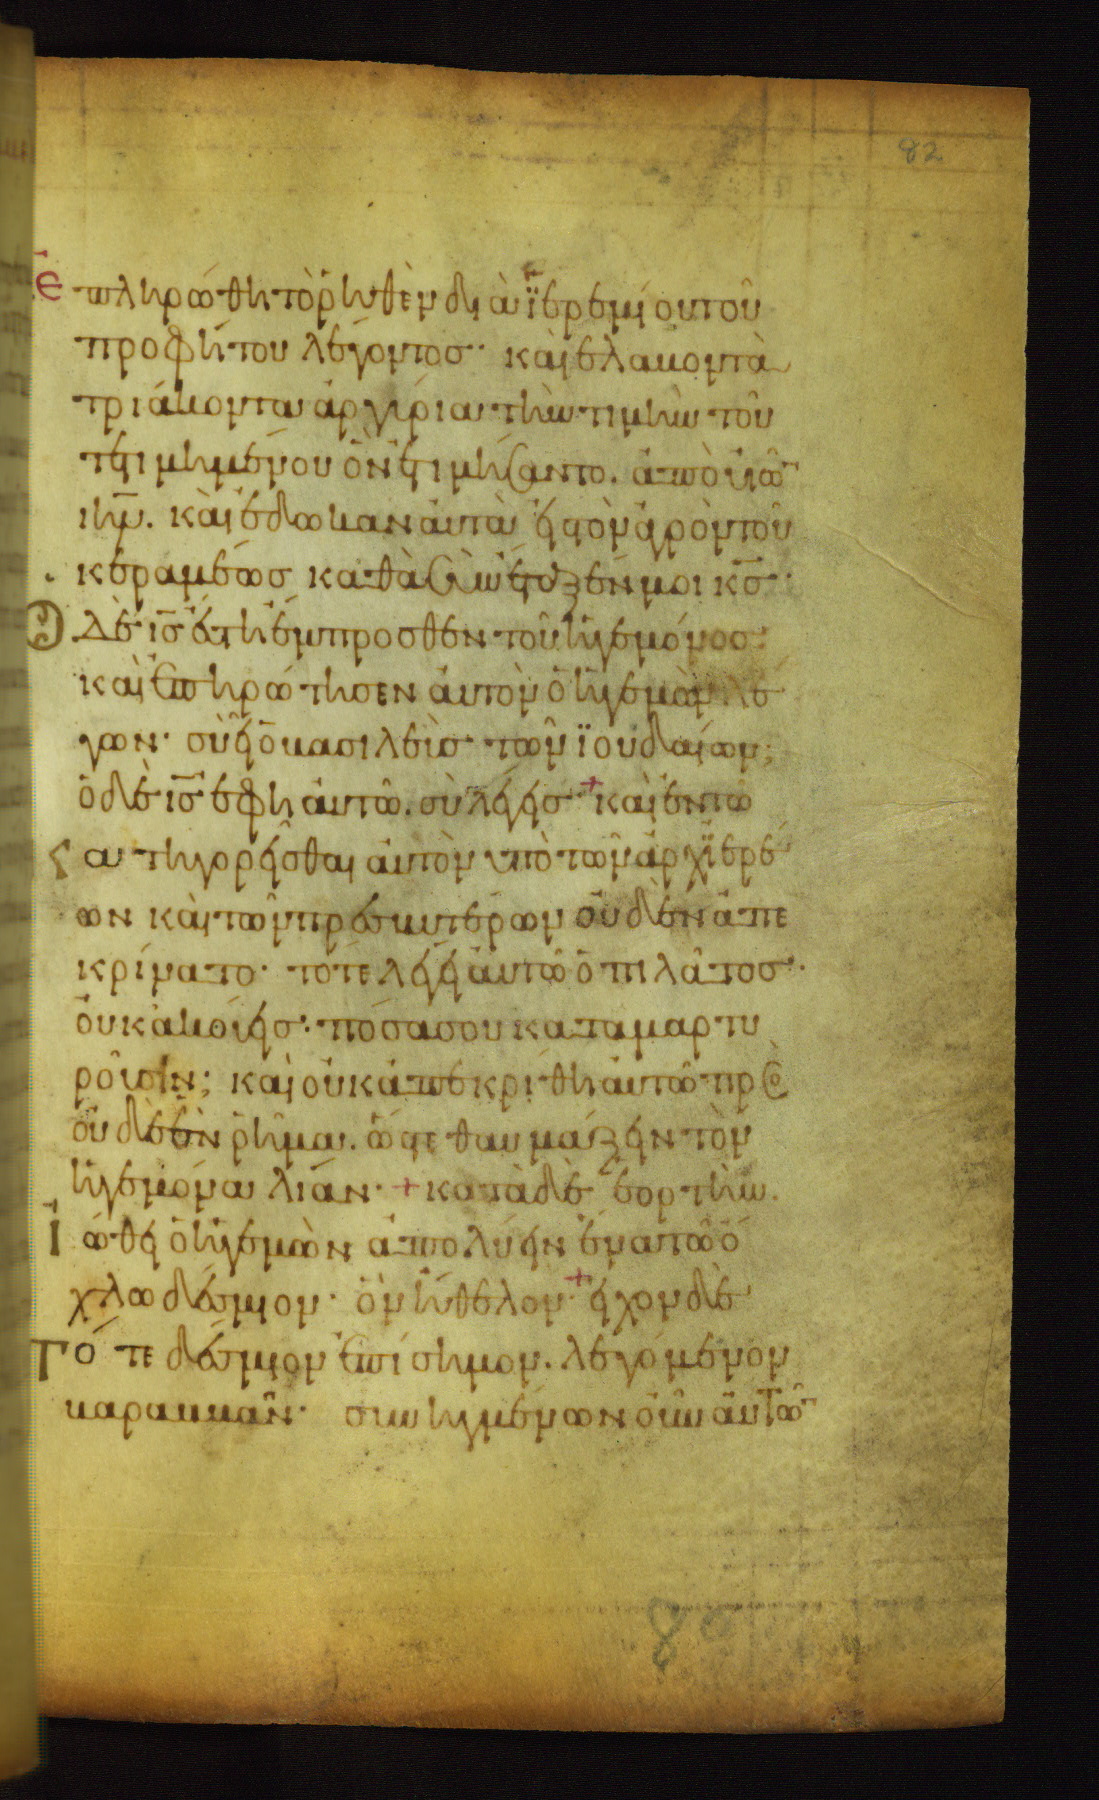 82
ἐπληρώθη τὸ ῥηθὲν διὰ ϊερεμίου τοῦ
προφήτου λέγοντος· καὶ ἔλαβον τὰ
τριάκοντα ἀργύρια τὴν τιμὴν τοῦ
τετιμημένου ὃν ἐτιμήσαντο. ἀπὸ υἱῶ̅
ιη̅λ. καὶ ἔδωκαν αὐτὰ εἰς τὸν ἀγρὸν τοῦ
κεραμέως καθὰ συνέταξέν μοι κ̅ς·
Ο δὲ ι̅ς ἔστη ἔμπροσθεν τοῦ ἡγεμόνος·
καὶ ἐπηρώτησεν αὐτὸν ὁ ἡγεμὼν λέ
γων· σὺ εἶ ὁ βασιλεὺς τῶν ϊουδαίων;
ὁ δὲ ι̅ς ἔφη αὐτῶ. σὺ λέγεις· + καὶ ἐν τῶ
κατηγορεῖσθαι αὐτὸν ὑπὸ τῶν ἀρχϊερέ
ων καὶ τῶν πρεσβυτέρων οὐδὲν ἀπε
κρίνατο· τότε λέγει αὐτῶ ὁ πιλᾶτος·
οὐκ ἀκούεις· πόσα σου καταμαρτυ
ροῦσιν; καὶ οὐκ ἀπεκρίθη αὐτῶ πρὸς
οὐδὲ ἓν ῥῆμα. ὥστε θαυμάζειν τὸν
ἡγεμόνα λίαν· + κατὰ δὲ ἑορτὴν.
εἰώθει ὁ ἡγεμὼν ἀπολύειν ἕνα τῶ ὄ
χλω δέσμιον· ὃν ἤθελον· + εἶχον δὲ
τότε δέσμιον ἐπίσημον. λεγόμενον
βαραββᾶν· συνηγμένων οὖν αὐτῶ̅
82